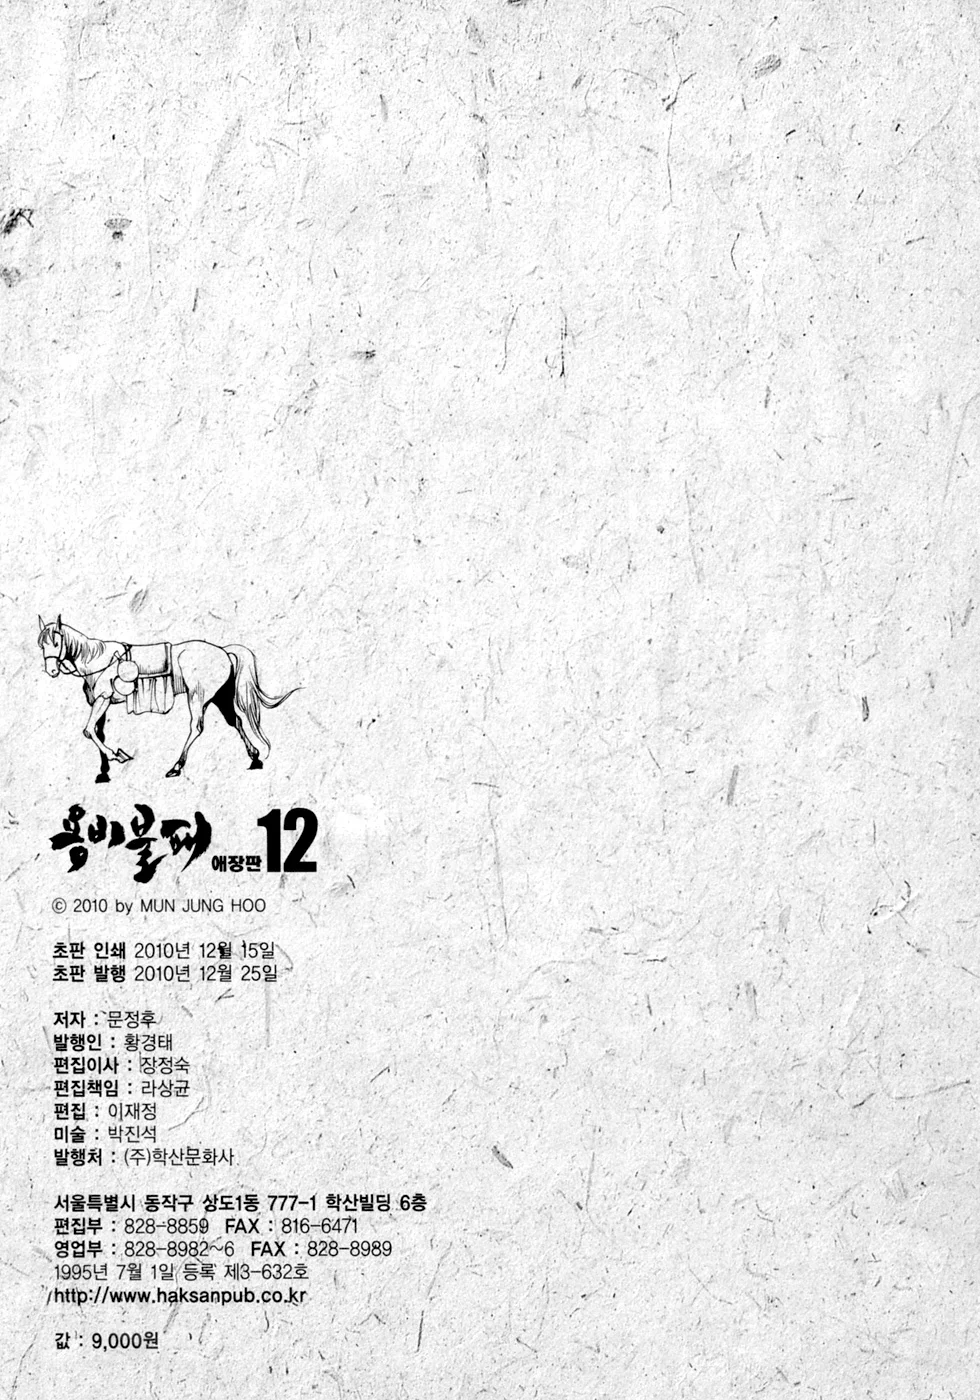 용비불패 애장판 12
© 2010 by MUN JUNG HOO
초판 인쇄 2010년 12월 15일
초판 발행 2010년 12월 25일
저자 : 문정후
발행인 : 황경태
편집이사 : 장정숙
편집책임 : 라상균
편집 : 이재정
미술 : 박진석
발행처 : (주)학산문화사
서울특별시 동작구 상도1동 777-1 학산빌딩 6층
편집부 : 828-8859 FAX : 816-6471
영업부 : 828-8982~6 FAX : 828-8989
1995년 7월 1일 등록 제3-632호
http://www.haksanpub.co.kr
값 : 9,000원